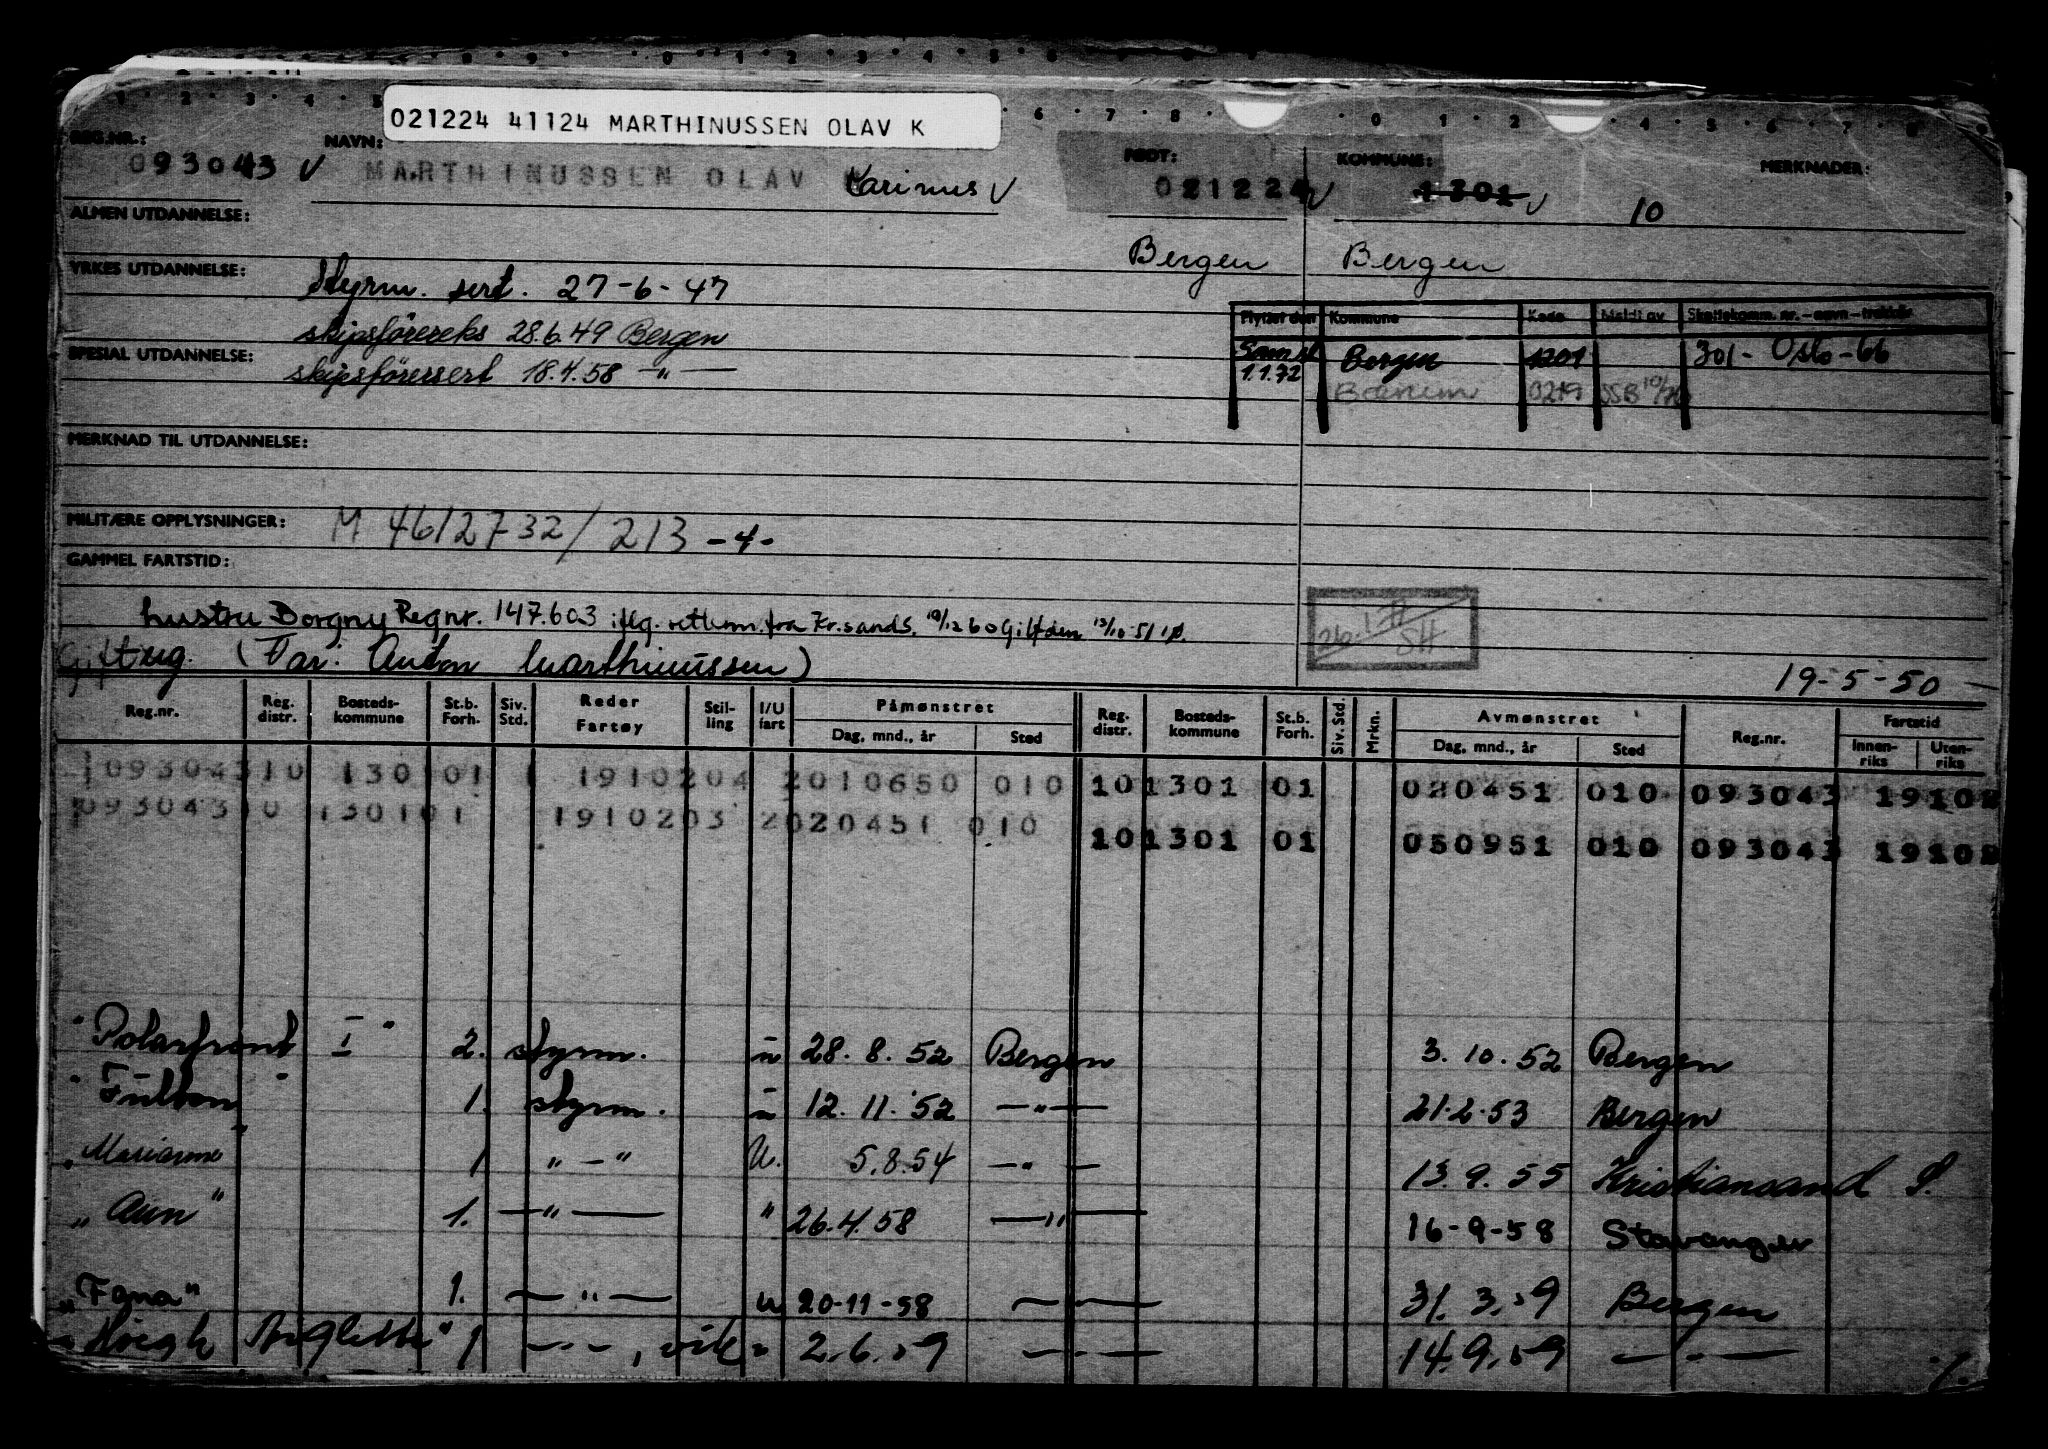 021224 41124 MARTHINUSSEN OLAV K
REG.NR.: NAVN: FØDT: KOMMUNE: MERKNADER:
093043 V MARTHINUSSEN OLAV Karinus V 021224 V 1301 V 10
ALMEN UTDANNELSE:
Bergen Bergen
YRKES UTDANNELSE: Styrm. sert. 27-6-47
Flyttet den Kommune Kode Meldt av Skattekomm. nr. – navn – trekkår
skipsförereks 28.6.49 Bergen
1.1.72 Bergen 1201 301- Oslo-66
SPESIAL UTDANNELSE: skipsförersert 18.4.58 —"—
Bærum 0219 SSB 10/70
MERKNAD TIL UTDANNELSE:
MILITÆRE OPPLYSNINGER: M 4612732/213 -4-
GAMMEL FARTSTID:
hustru Dorgny Regnr. 147.603 iflg. fra Kr.sand S. 10/12 60 Gift den 13/10-51
Gift ug. (Far: Anton Marthinussen)
19-5-50
Reg.nr. Reg. distr. Bosteds-kommune St.b. Forh. Siv. Std. Reder Fartøy Stil-ling I/U fart Påmønstret Dag, mnd., år Sted Reg. distr. Bosteds-kommune St.b. Forh. Siv. Std. Mrkn. Avmønstret Dag, mnd., år Sted Reg.nr. Fartstid Innen-riks Uten-riks
109304310 1301 01 1 1910204 2010650 010 10 1301 01 020451 010 093043 19102
109304310 130101 1910203 2020451 010
10 1301 01 050951 010 093043 19102
"Polarfront I" 2. styrm. u 28.8.52 Bergen 3.10.52 Bergen
"Fulton" 1. styrm. u 12.11.52 —"— 21.2.53 Bergen
"Marianne" 1 "-" U. 5.8.54 —"— 13.9.55 Kristiansand S.
"Aun" 1. —"— " 26.4.58 —"— 16-9-58 Stavanger
"Fana" 1. —"— u 20-11-58 —"— 31.3.59 Bergen
"Höegh Aiglette" 1 —"—, vik " 2.6.59 —"— 14.9.59 —"—